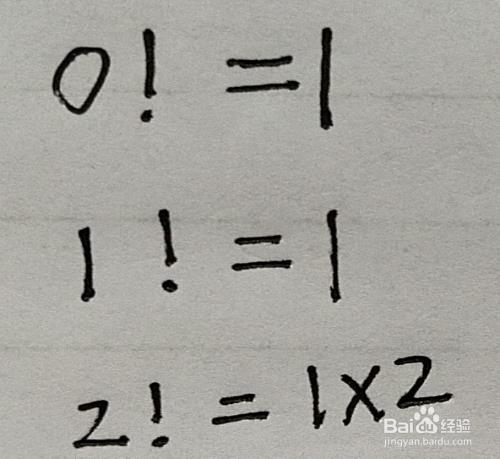 0! =1
1! =1
2! = 1×2
Baidu经验
jingyan.baidu.com